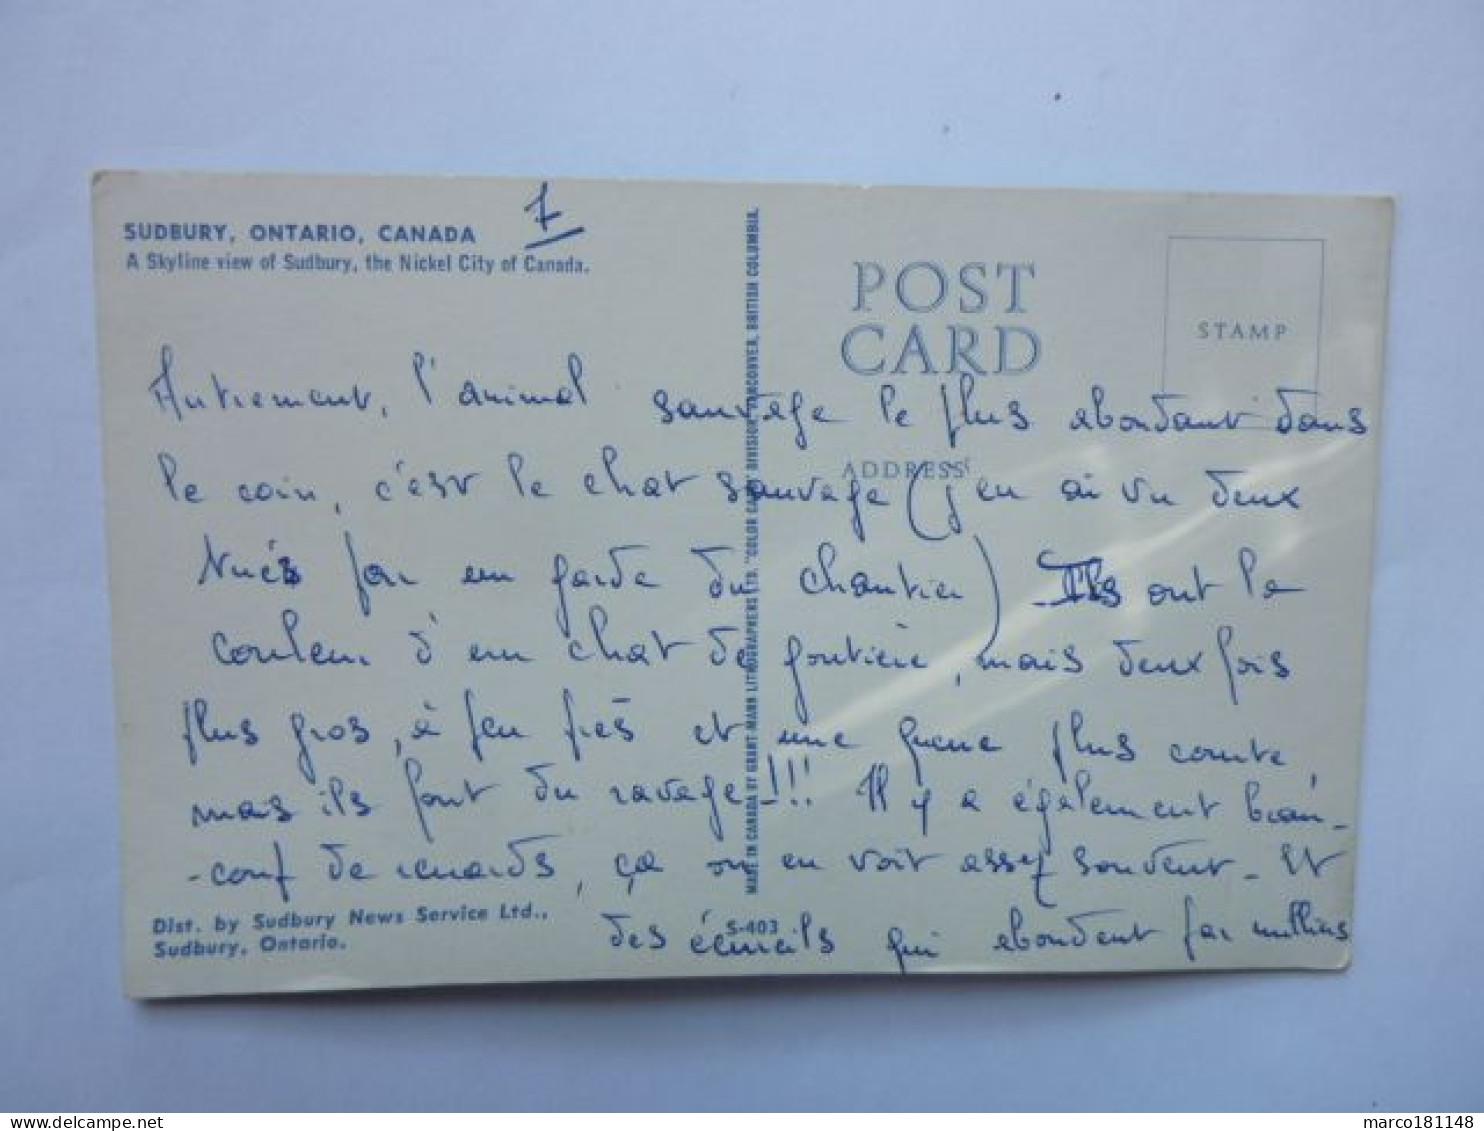 7
SUDBURY, ONTARIO, CANADA
A Skyline view of Sudbury, the Nickel City of Canada.
POST
CARD
STAMP
ADDRESS
MADE IN CANADA BY GRANT-MANN LITHOGRAPHERS LTD. "COLOR CARD" DIVISION, VANCOUVER, BRITISH COLUMBIA.
Autrement, l'animal sauvage le plus abondant dans
le coin, c'est le chat sauvage (j'en ai vu deux
tués par un garde du chantier) Ils ont la
couleur d'un chat de goutière, mais deux fois
plus gros, à peu près et une queue plus courte,
mais ils font du ravage!!! Il y a également beau-
-coup de renards, ça on en voit assez souvent - Et
des écureils qui abondent par milliers
Dist. by Sudbury News Service Ltd.,
Sudbury, Ontario.
S-403
marco181148